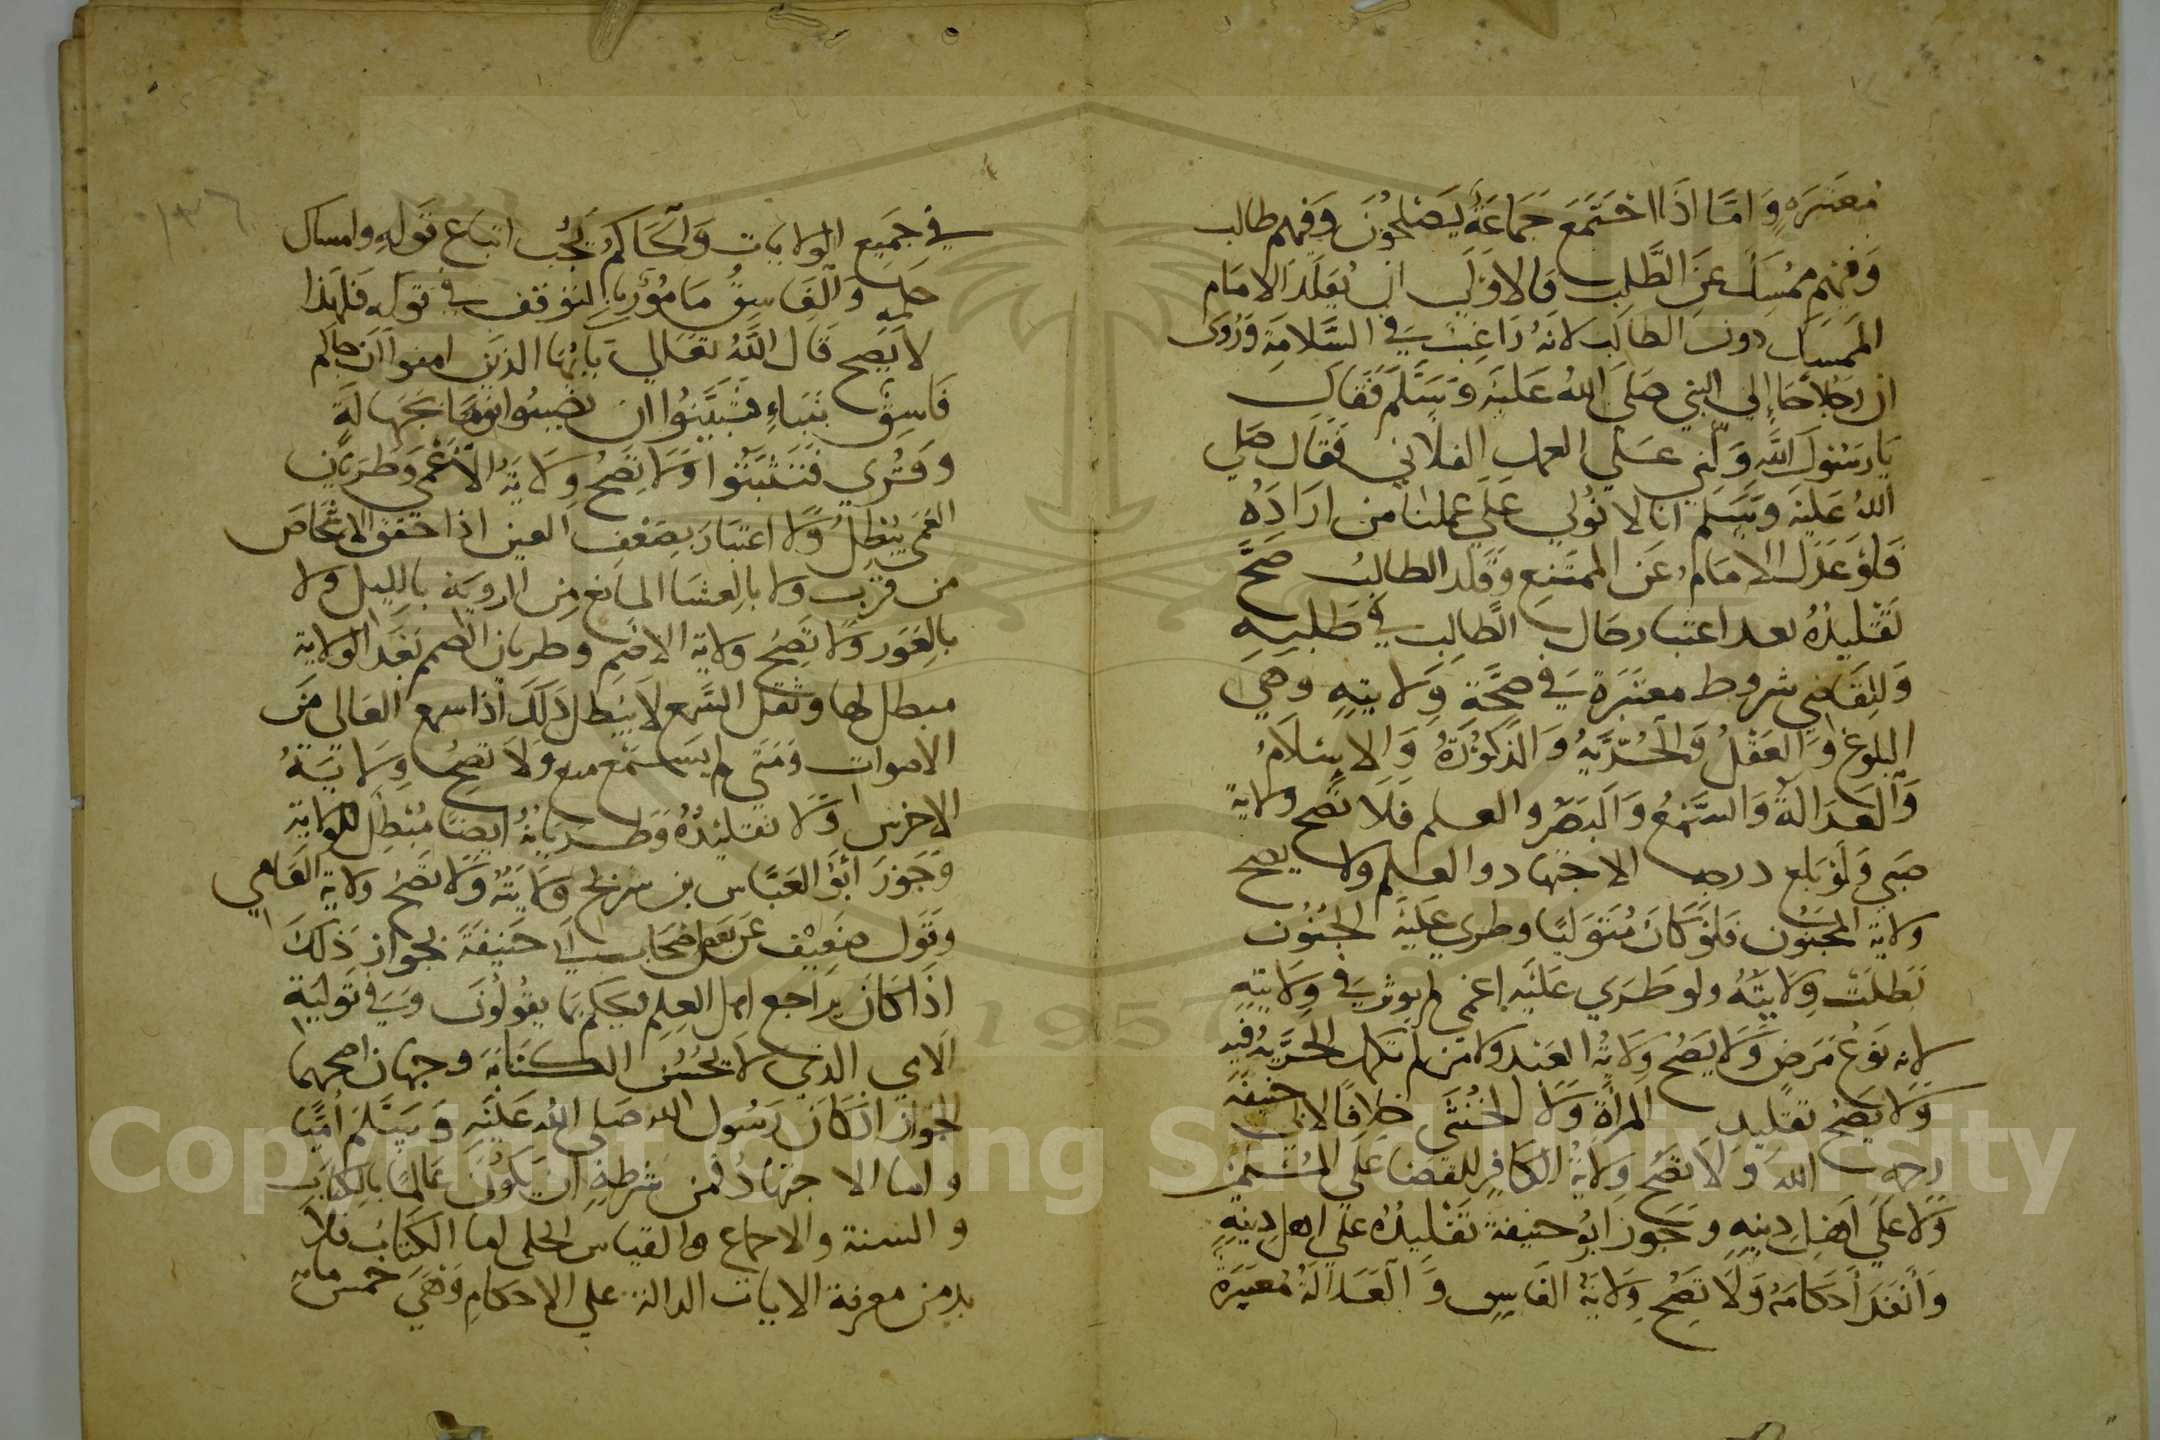 معتبرة وَامَّا اذَا اجْتَمَعَ جَمَاعَةٌ يَصْلحُوُنَ وَفيهم طالب
وَفيهم ممْسِكٌ عَنِ الطَّلِب فالاوَلَي ان يُقَلّدَ الامَام
المَمسك دون الطالب لانهُ رَاغِبٌ في السَّلامَةِ وَرُوىَ
ان رجُلاً جَا إلي النبي صَلي اللهُ عَلَيْه وَسَلّمَ فَقَال
يَا رَسُولَ اللَّهِ وَلّني عَلَي العمل الفلاني فَقَال صَلي
اللهُ عَلَيْه وَسَلم انا لا نُولي عَلَي عملنا من ارَادَهُ
فَلوْ عَدَلَ الامَامُ عَن الممتنِع وَقلد الطالبُ صَحَّ
تَقْلِيدُهُ بعد اعتبار حَال الطالِب في طَلبِهِ
وَللِقَاضي شروط معتَبَرَة في صحَّة وَلا يتِهِ وَهيَ
البلوغ وَالعَقْلُ وَالحُرِّيَّهُ وَالذكوُرَةُ وَالإسْلاَمُ
وَالعَدَالَةُ وَالسَّمْعُ وَالبَصَرُ والعلم فَلاَ تَصح ولايةُ
صَبي وَلَوْ بلغ درجة الاجتهاد والعلم ولا يصح
ولايَة المجنُون فَلوْ كَانَ مُتَوَليًا وطري عَلَيْه الجُنُوُن
بَطلَتْ وِلاَيَتُهُ ولو طَرَي عَلَيْه اغمي لم يوثر في وِلاَيتِهِ
لانه نَوْعُ مَرَضٍ وَلاَ يَصُحُ وَلاَيةُ العَبْد ولا مَن لم تكمل الحُرِّيَّهُ فيه
وَلاَ يَصُحُ تَقليد المرأة وَلاَ الخُنْثَي خلافًا لابي حنيفَة
رحمه الله وَلاَ تصُح وَلايةُ الكافِر للقضا عَلَي المُسْلمين
وَلاَ عَلَي اهْلِ دِينِهِ وَجَوز ابُو حنيفة تَقْليدُه علي اهل دِينِهِ
وَانفَذَ احْكَامَهُ وَلاَ تَصُحُ وِلاَيَةُ الفَاسِق وَالعَدَالَةُ مُعتبَرَة
في جَمِيع الولايات وَالحَاكمُ يَجُب اتبَاع قَولهِ وامساك
حكمه وَالفَاسِقُ مَامُوُر بالتوقف في قوله فَلِهَذا
لاَ يَصح قَال اللَّهُ تَعَالي يَا ايُّهَا الذين امنوا ان جاكم
فَاسِقٌ بنَبَاءٍ فتَبَيَّنُوا ان تصيبُوا قومًا بجَهَالَةٍ
وقُري فَتَثبَّتُوا وَلا تصُحُ وِلايَةُ الأعْمَي وَطَرَيَان
العَمَي يُبْطِلُ وَلا اعتبَارَ بضعف العين اذا حقق الاشخَاصَ
من قربٍ ولا بالعشا المانع من الروية بالليل ولا
بالعَوَر وَلاَ تَصِح ولاية الاصم وطريان الصمم بَعْدَ الولاية
مبطل لها وثقل السَّمع لا يُبْطل ذَلكَ اذا سمع العَالى من
الاصوات وَمَتَى لم يسمع منع وَلاَ تصُح ولايَةُ
الاخرس وَلا تقليدُهُ وَطَرَيانهُ ايضًا مُبْطِل للولاية
وَجَوزَ أَبُو العَبَّاس بن سريج وَلاَيَتَهُ وَلاَ تصُح ولاية العَامِي
وَقَول ضَعِيف عَن بَعض اصحاب ابي حَنِيفَةَ بجواز ذَلكَ
اذَا كَانَ يراجع اهل العلم فيحكم بما يقُولُونَ وَفي تَوليَةِ
الامي الذي لاَ يحُسُن الكتَابَة وجهان اصحهما
الجواز اذ كَانَ رَسُول الله صَلي اللهُ عَلَيْه وَسَلّمَ اميًّا
واما الاجتهَادُ فمن شرطِهِ ان يَكُونَ عَالمًا بالكِتَابِ
والسنة والاجماع والقياس الجلي اما الكتَابُ فلا
بد من معرفة الايات الدالة علي الاحكامِ وَهيَ خمس ماية
١٣٦
Copyright © King Saud University
1957